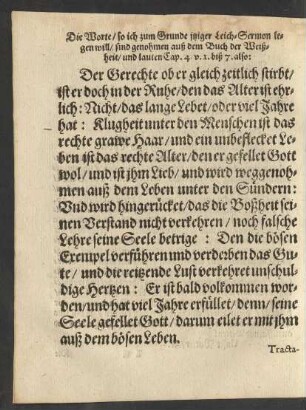 Die Worte / so ich zum Grunde itziger Leich-Sermon le-
gen will / sind genohmen auß dem Buch der Weiß-
heit / und lauten Cap. 4. v. 1. biß 7. also:
Der Gerechte ob er gleich zeitlich stirbt /
ist er doch in der Ruhe / den das Alter ist ehr-
lich: Nicht / das lange Lebet / oder viel Jahre
hat: Klugheit unter den Menschen ist das
rechte grawe Haar / und ein unbeflecket Le-
ben ist das rechte Alter / den er gefellet Gott
wol / und ist jhm Lieb / und wird weggenoh-
men auß dem Leben unter den Sündern:
Vnd wird hingerücket / das die Boßheit sei-
nen Verstand nicht verkehren / noch falsche
Lehre seine Seele betrige: Den die bösen
Exempel verführen und verderben das Gu-
te / und die reitzende Lust verkehret unschul-
dige Hertzen: Er ist bald volkommen wor-
den / und hat viel Jahre erfüllet / denn / seine
Seele gefellet Gott / darum eilet er mit jhm
auß dem bösen Leben.
Tracta-